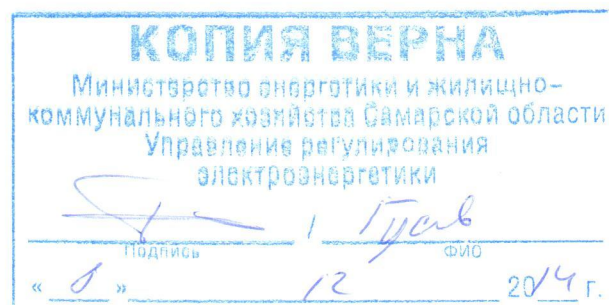 КОПИЯ ВЕРНА
Министерство энергетики и жилищно-
коммунального хозяйства Самарской области
Управление регулирования
электроэнергетики
/
Подпись ФИО
« 8 » 12 2014 г.